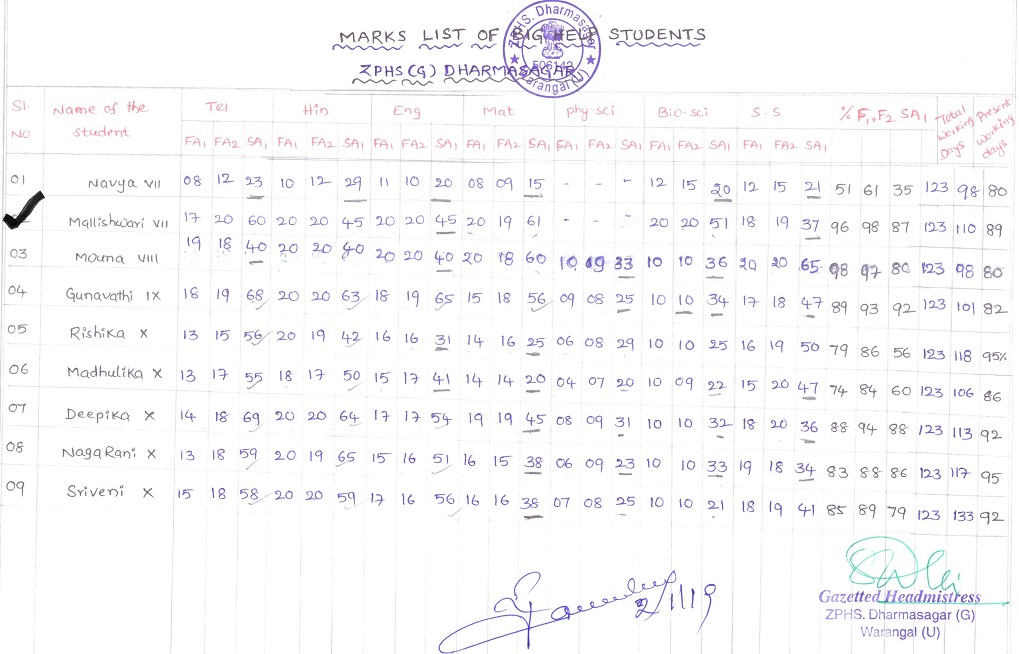 MARKS LIST OF BIG HELP STUDENTS
ZPHS (G) DHARMASAGAR
ZPHS. Dharmasagar
506142
Warangal (U)
Sl. No Name of the student Tel Hin Eng Mat phy-sci Bio-sci S.S % F1, F2 SA1 Total Working Days Present working days
FA1 FA2 SA1 FA1 FA2 SA1 FA1 FA2 SA1 FA1 FA2 SA1 FA1 FA2 SA1 FA1 FA2 SA1 FA1 FA2 SA1
01 Navya VII 08 12 23 10 12 29 11 10 20 08 09 15 - - - 12 15 20 12 15 21 51 61 35 123 98 80
Mallishwari VII 17 20 60 20 20 45 20 20 45 20 19 61 - - - 20 20 51 18 19 37 96 98 87 123 110 89
03 Mouna VIII 19 18 40 20 20 40 20 20 40 20 18 60 10 09 33 10 10 36 20 20 65 98 97 80 123 98 80
04 Gunavathi IX 18 19 68 20 20 63 18 19 65 15 18 56 09 08 25 10 10 34 17 18 47 89 93 92 123 101 82
05 Rishika X 13 15 56 20 19 42 16 16 31 14 16 25 06 08 29 10 10 25 16 19 50 79 86 56 123 118 95%
06 Madhulika X 13 17 55 18 17 50 15 17 41 14 14 20 04 07 20 10 09 22 15 20 47 74 84 60 123 106 86
07 Deepika X 14 18 69 20 20 64 17 17 54 19 19 45 08 09 31 10 10 32 18 20 36 88 94 88 123 113 92
08 NagaRani X 13 18 59 20 19 65 15 16 51 16 15 38 06 09 23 10 10 33 19 18 34 83 88 86 123 117 95
09 Sriveni X 15 18 58 20 20 59 17 16 56 16 16 38 07 08 25 10 10 21 18 19 41 85 89 79 123 133 92
2/1/19
Gazetted Headmistress
ZPHS. Dharmasagar (G)
Warangal (U)